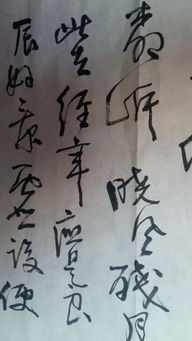 杨柳岸晓风残月
此去经年应是良
辰好景虚设便